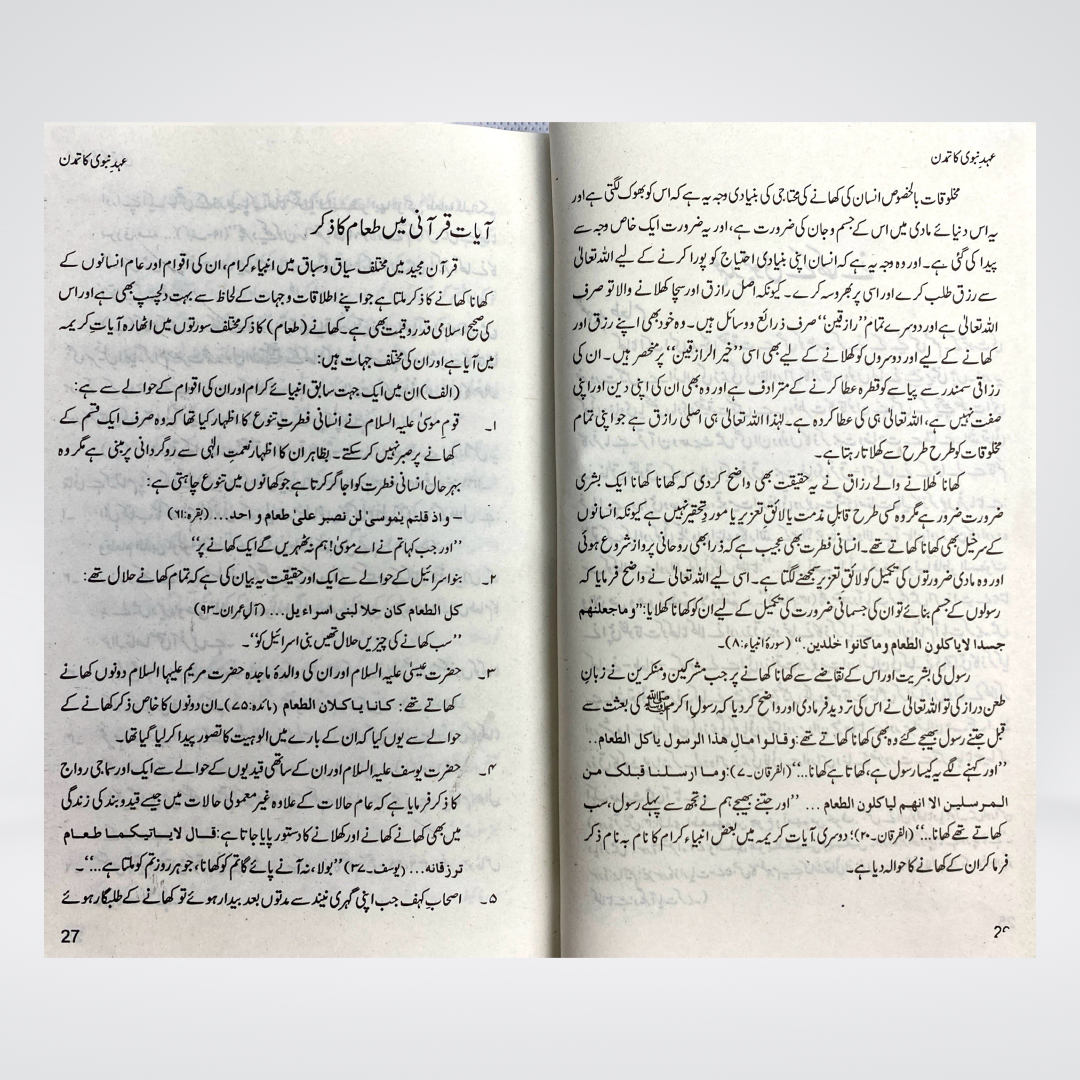 عہدِ نبوی کا تمدن
مخلوقات بالخصوص انسان کی کھانے کی محتاجی کی بنیادی وجہ یہ ہے کہ اس کو بھوک لگتی ہے اور
یہ اس دنیائے مادی میں اس کے جسم و جان کی ضرورت ہے، اور یہ ضرورت ایک خاص وجہ سے
پیدا کی گئی ہے۔ اور وہ وجہ یہ ہے کہ انسان اپنی بنیادی احتیاج کو پورا کرنے کے لیے اللہ تعالیٰ
سے رزق طلب کرے اور اسی پر بھروسہ کرے۔ کیونکہ اصل رازق اور سچا کھلانے والا تو صرف
اللہ تعالیٰ ہے اور دوسرے تمام ’’رازقین‘‘ صرف ذرائع و وسائل ہیں۔ وہ خود بھی اپنے رزق اور
کھانے کے لیے اور دوسروں کو کھلانے کے لیے بھی اسی ’’خیر الرازقین‘‘ پر منحصر ہیں۔ ان کی
رزاقی سمندر سے پیاسے کو قطرہ عطا کرنے کے مترادف ہے اور وہ بھی ان کی اپنی دین اور اپنی
صفت نہیں ہے، اللہ تعالیٰ ہی کی عطا کردہ ہے۔ لہٰذا اللہ تعالیٰ ہی اصلی رازق ہے جو اپنی تمام
مخلوقات کو طرح طرح سے کھلاتا رہتا ہے۔
کھانا کھلانے والے رزاق نے یہ حقیقت بھی واضح کر دی کہ کھانا کھانا ایک بشری
ضرورت ضرور ہے مگر وہ کسی طرح قابلِ مذمت یا لائقِ تعزیر یا موردِ تحقیر نہیں ہے کیونکہ انسانوں
کے سرخیل بھی کھانا کھاتے تھے۔ انسانی فطرت بھی عجیب ہے کہ ذرا بھی روحانی پرواز شروع ہوئی
اور وہ مادی ضرورتوں کی تکمیل کو لائقِ تعزیر سمجھنے لگتا ہے۔ اسی لیے اللہ تعالیٰ نے واضح فرمایا کہ
رسولوں کے جسم بنائے تو ان کی جسمانی ضرورت کی تکمیل کے لیے ان کو کھانا کھلایا: ’’وما جعلنٰھم
جسدا لایاکلون الطعام وما کانوا خٰلدین.‘‘ (سورۂ انبیاء:۸)۔
رسول کی بشریت اور اس کے تقاضے سے کھانا کھانے پر جب مشرکین و منکرین نے زبانِ
طعن دراز کی تو اللہ تعالیٰ نے اس کی تردید فرمادی اور واضح کردیا کہ رسولِ اکرم ﷺ کی بعثت سے
قبل جتنے رسول بھیجے گئے وہ بھی کھانا کھاتے تھے: وقالوا مالِ ھذا الرسول یاکل الطعام..
’’اور کہنے لگے یہ کیسا رسول ہے، کھاتا ہے کھانا...‘‘ (الفرقان۔۷): وما ارسلنا قبلک من
المرسلین الا انھم لیاکلون الطعام ... ’’اور جتنے بھیجے ہم نے تجھ سے پہلے رسول، سب
کھاتے تھے کھانا...‘‘ (الفرقان۔۲۰)؛ دوسری آیات کریمہ میں بعض انبیاء کرام کا نام بہ نام ذکر
فرما کر ان کے کھانے کا حوالہ دیا ہے۔
عہدِ نبوی کا تمدن
آیات قرآنی میں طعام کا ذکر
قرآن مجید میں مختلف سیاق و سباق میں انبیاء کرام، ان کی اقوام اور عام انسانوں کے
کھانا کھانے کا ذکر ملتا ہے جو اپنے اطلاقات و جہات کے لحاظ سے بہت دلچسپ بھی ہے اور اس
کی صحیح اسلامی قدر و قیمت بھی ہے۔ کھانے (طعام) کا ذکر مختلف سورتوں میں اٹھارہ آیاتِ کریمہ
میں آیا ہے اور ان کی مختلف جہات ہیں:
(الف) ان میں ایک جہت سابق انبیائے کرام اور ان کی اقوام کے حوالے سے ہے:
۱۔ قومِ موسیٰ علیہ السلام نے انسانی فطرتِ تنوع کا اظہار کیا تھا کہ وہ صرف ایک قسم کے
کھانے پر صبر نہیں کرسکتے۔ بظاہر ان کا اظہار نعمتِ الٰہی سے روگردانی پر مبنی ہے مگر وہ
بہرحال انسانی فطرت کو اجاگر کرتا ہے جو کھانوں میں تنوع چاہتی ہے:
– واذ قلتم یٰموسیٰ لن نصبر علیٰ طعام و احد... (بقرہ:۶۱)
’’اور جب کہا تم نے اے موسیٰ! ہم نہ ٹھہریں گے ایک کھانے پر‘‘
۲۔ بنو اسرائیل کے حوالے سے ایک اور حقیقت یہ بیان کی ہے کہ تمام کھانے حلال تھے:
کل الطعام کان حلا لبنی اسراءیل... (آل عمران۔۹۳)
’’سب کھانے کی چیزیں حلال تھیں بنی اسرائیل کو‘‘۔
۳۔ حضرت عیسیٰ علیہ السلام اور ان کی والدۂ ماجدہ حضرت مریم علیہا السلام دونوں کھانے
کھاتے تھے: کانا یاکلان الطعام (مائدہ:۷۵)۔ ان دونوں کا خاص ذکر کھانے کے
حوالے سے یوں کیا کہ ان کے بارے میں الوہیت کا تصور پیدا کر لیا گیا تھا۔
۴۔ حضرت یوسف علیہ السلام اور ان کے ساتھی قیدیوں کے حوالے سے ایک اور سماجی رواج
کا ذکر فرمایا ہے کہ عام حالات کے علاوہ غیر معمولی حالات میں جیسے قید و بند کی زندگی
میں بھی کھانے کھانے اور کھلانے کا دستور پایا جاتا ہے: قال لایاتیکما طعام
ترزقانہ... (یوسف۔۳۷) ’’بولا، نہ آنے پائے گا تم کو کھانا، جو ہر روز تم کو ملتا ہے...‘‘۔
۵۔ اصحابِ کہف جب اپنی گہری نیند سے مدتوں بعد بیدار ہوئے تو کھانے کے طلبگار ہوئے
27